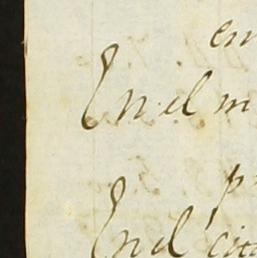 en
En el m
p
En el cit